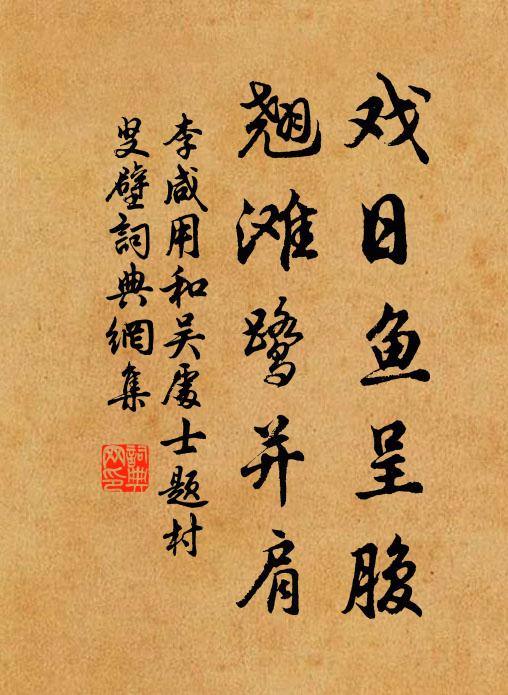 戏日鱼呈腹
翘滩鹭并肩
李咸用和吴處士題村
叟壁詞典網集
詞典网印